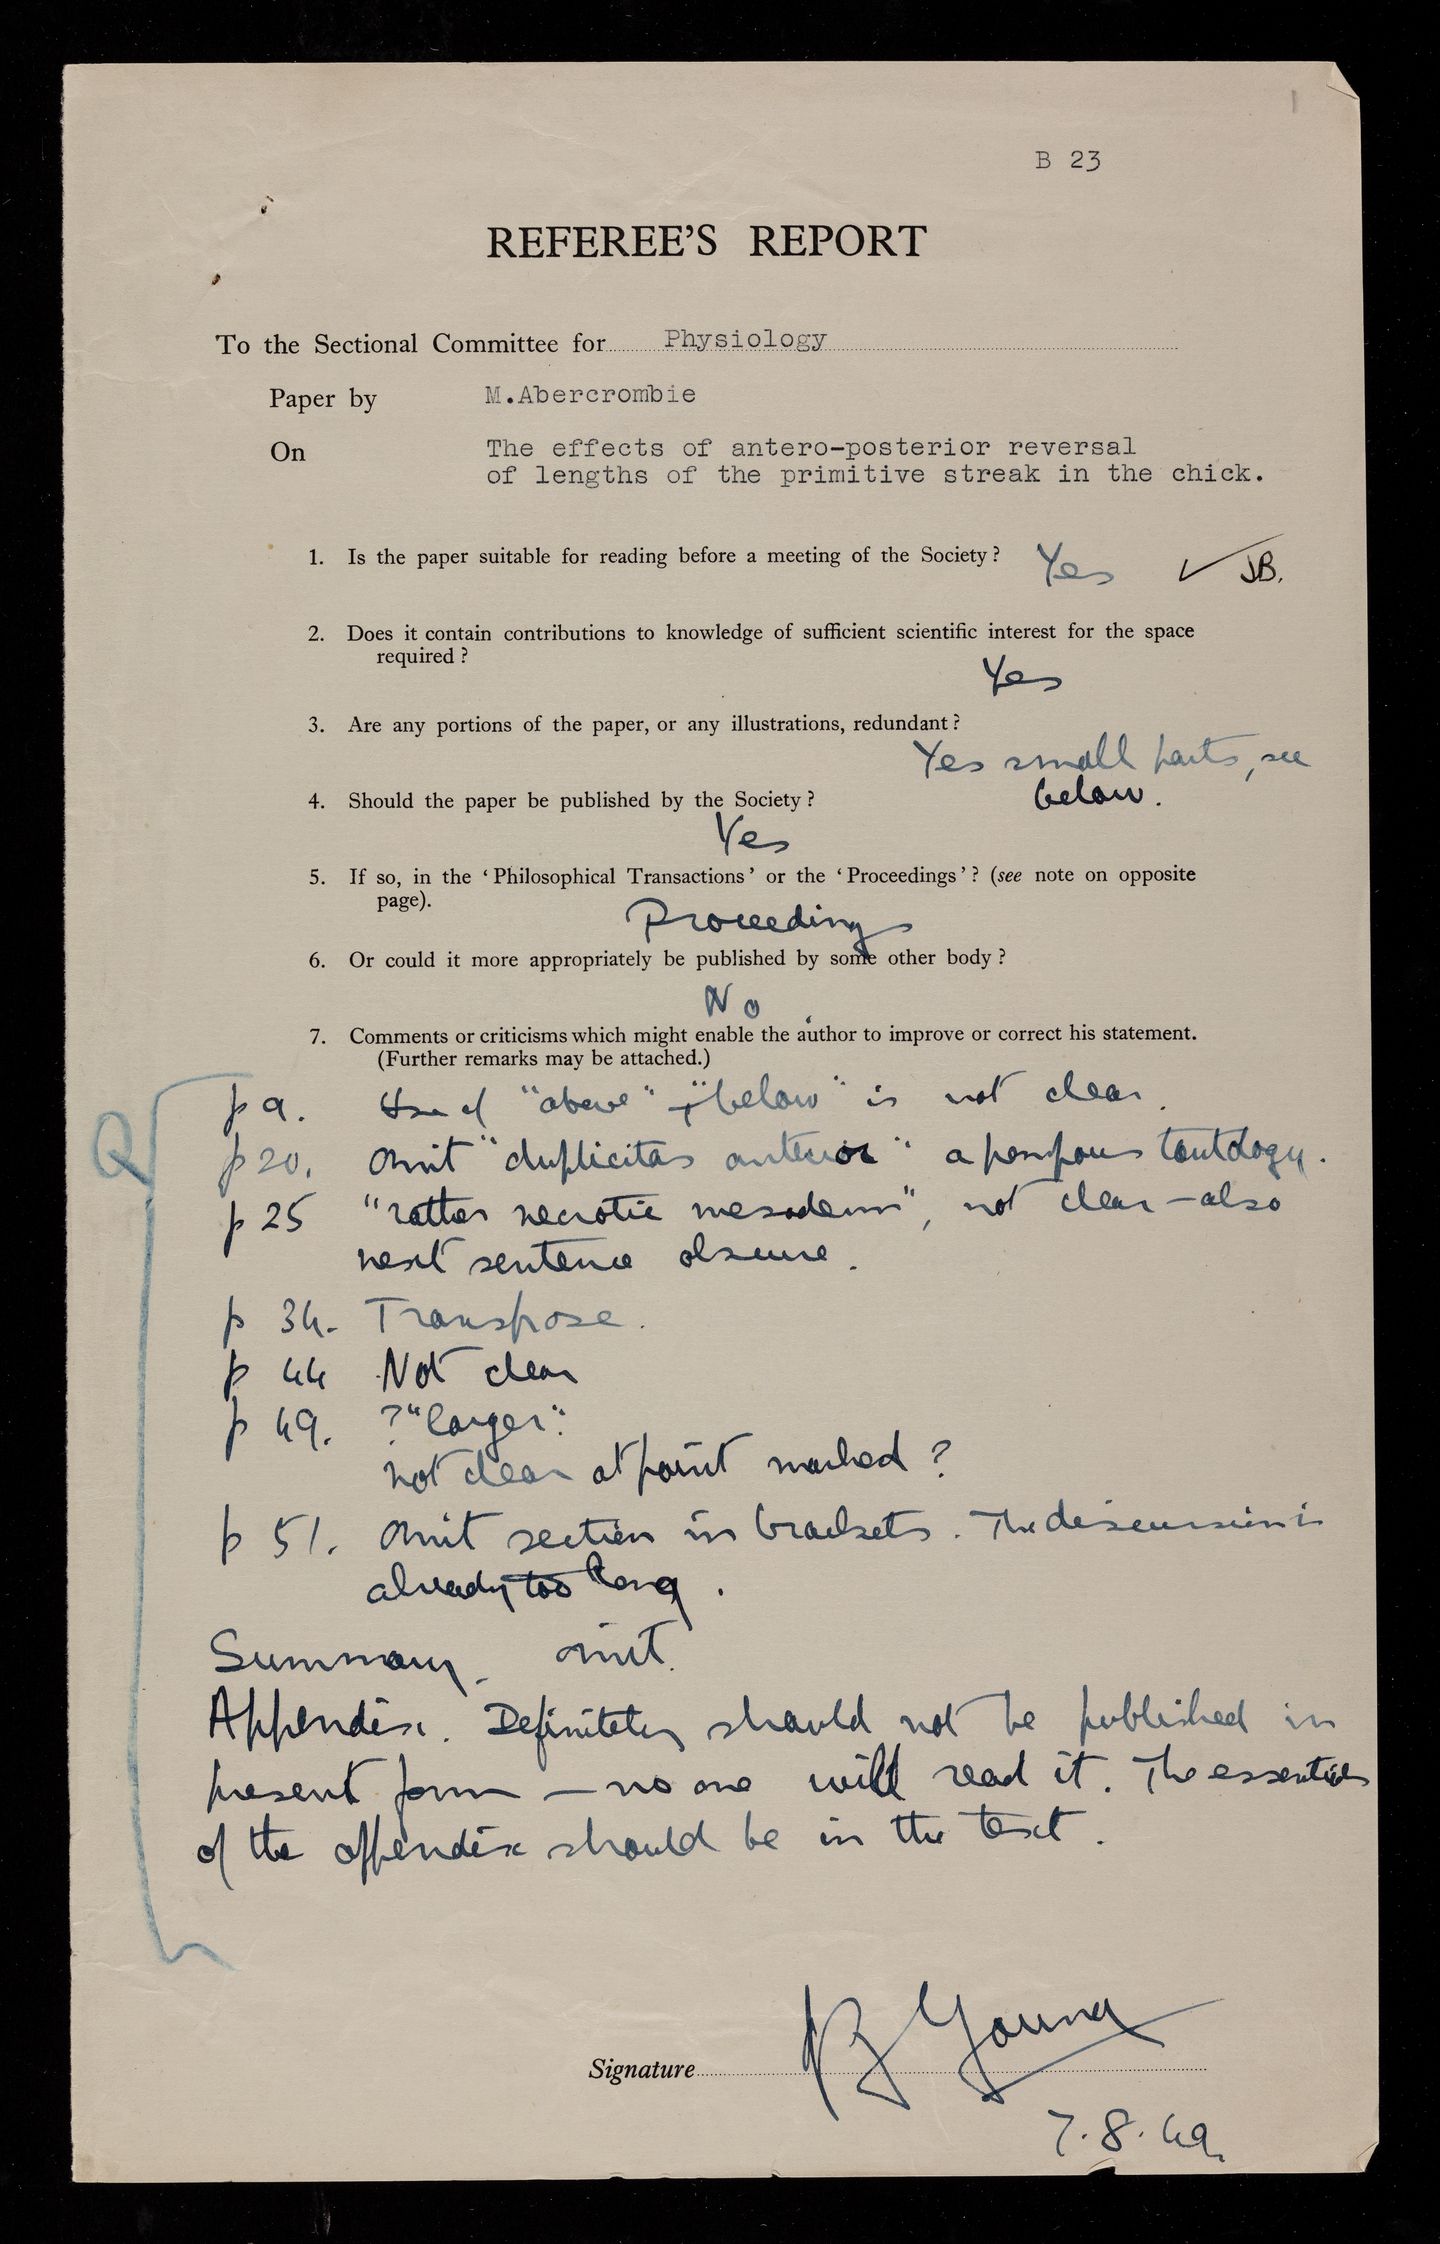 1
B 23
REFEREE'S REPORT
To the Sectional Committee for Physiology
Paper by M.Abercrombie
On The effects of antero-posterior reversal
of lengths of the primitive streak in the chick.
1. Is the paper suitable for reading before a meeting of the Society? Yes ✓ JB.
2. Does it contain contributions to knowledge of sufficient scientific interest for the space
required?
Yes
3. Are any portions of the paper, or any illustrations, redundant?
Yes small parts, see
below.
4. Should the paper be published by the Society?
Yes
5. If so, in the 'Philosophical Transactions' or the 'Proceedings'? (see note on opposite
page).
Proceedings
6. Or could it more appropriately be published by some other body?
No
7. Comments or criticisms which might enable the author to improve or correct his statement.
(Further remarks may be attached.)
p 9. Use of "above" + "below" is not clear.
p 20. Omit "duplicitas anterior" a pompous tautology.
p 25 "rather necrotic mesoderm", not clear - also
next sentence obscure.
p 34. Transpose.
p 44 Not clear
p 49. ? "larger".
not clear at point marked?
p 51. Omit section in brackets. The discussion is
already too long.
Summary. omit.
Appendix. Definitely should not be published in
present form - no one will read it. The essentials
of the appendix should be in the text.
Signature JZ Young
7.8.49.